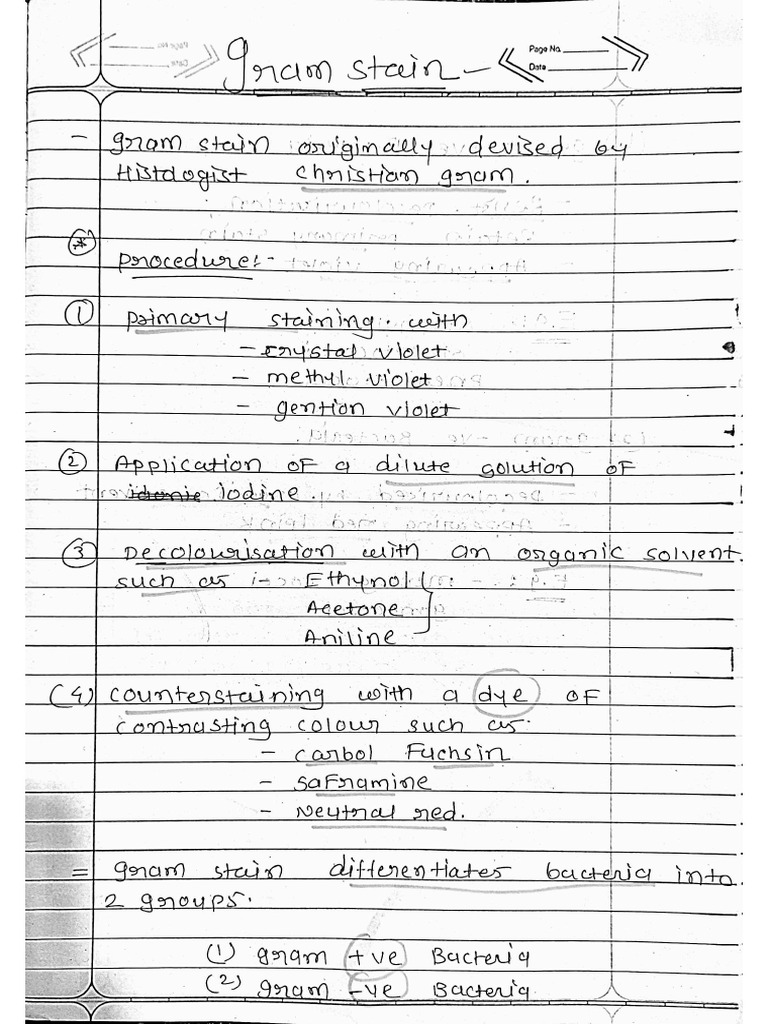 Gram stain -
Page No.
Date
- Gram stain originally devised by
Histologist Christian gram.
* Procedure:-
1 Primary staining with
- crystal violet
- methyl violet
- gention violet
2 Application of a dilute solution of
iodine.
3 Decolourisation with an organic solvent
such as :- Ethynol
Acetone
Aniline
(4) counterstaining with a dye of
contrasting colour such as
- carbol Fuchsin
- saframine
- Neutral red.
= gram stain differentiates bacteria into
2 groups.
(1) gram +ve Bacteria
(2) gram -ve Bacteria